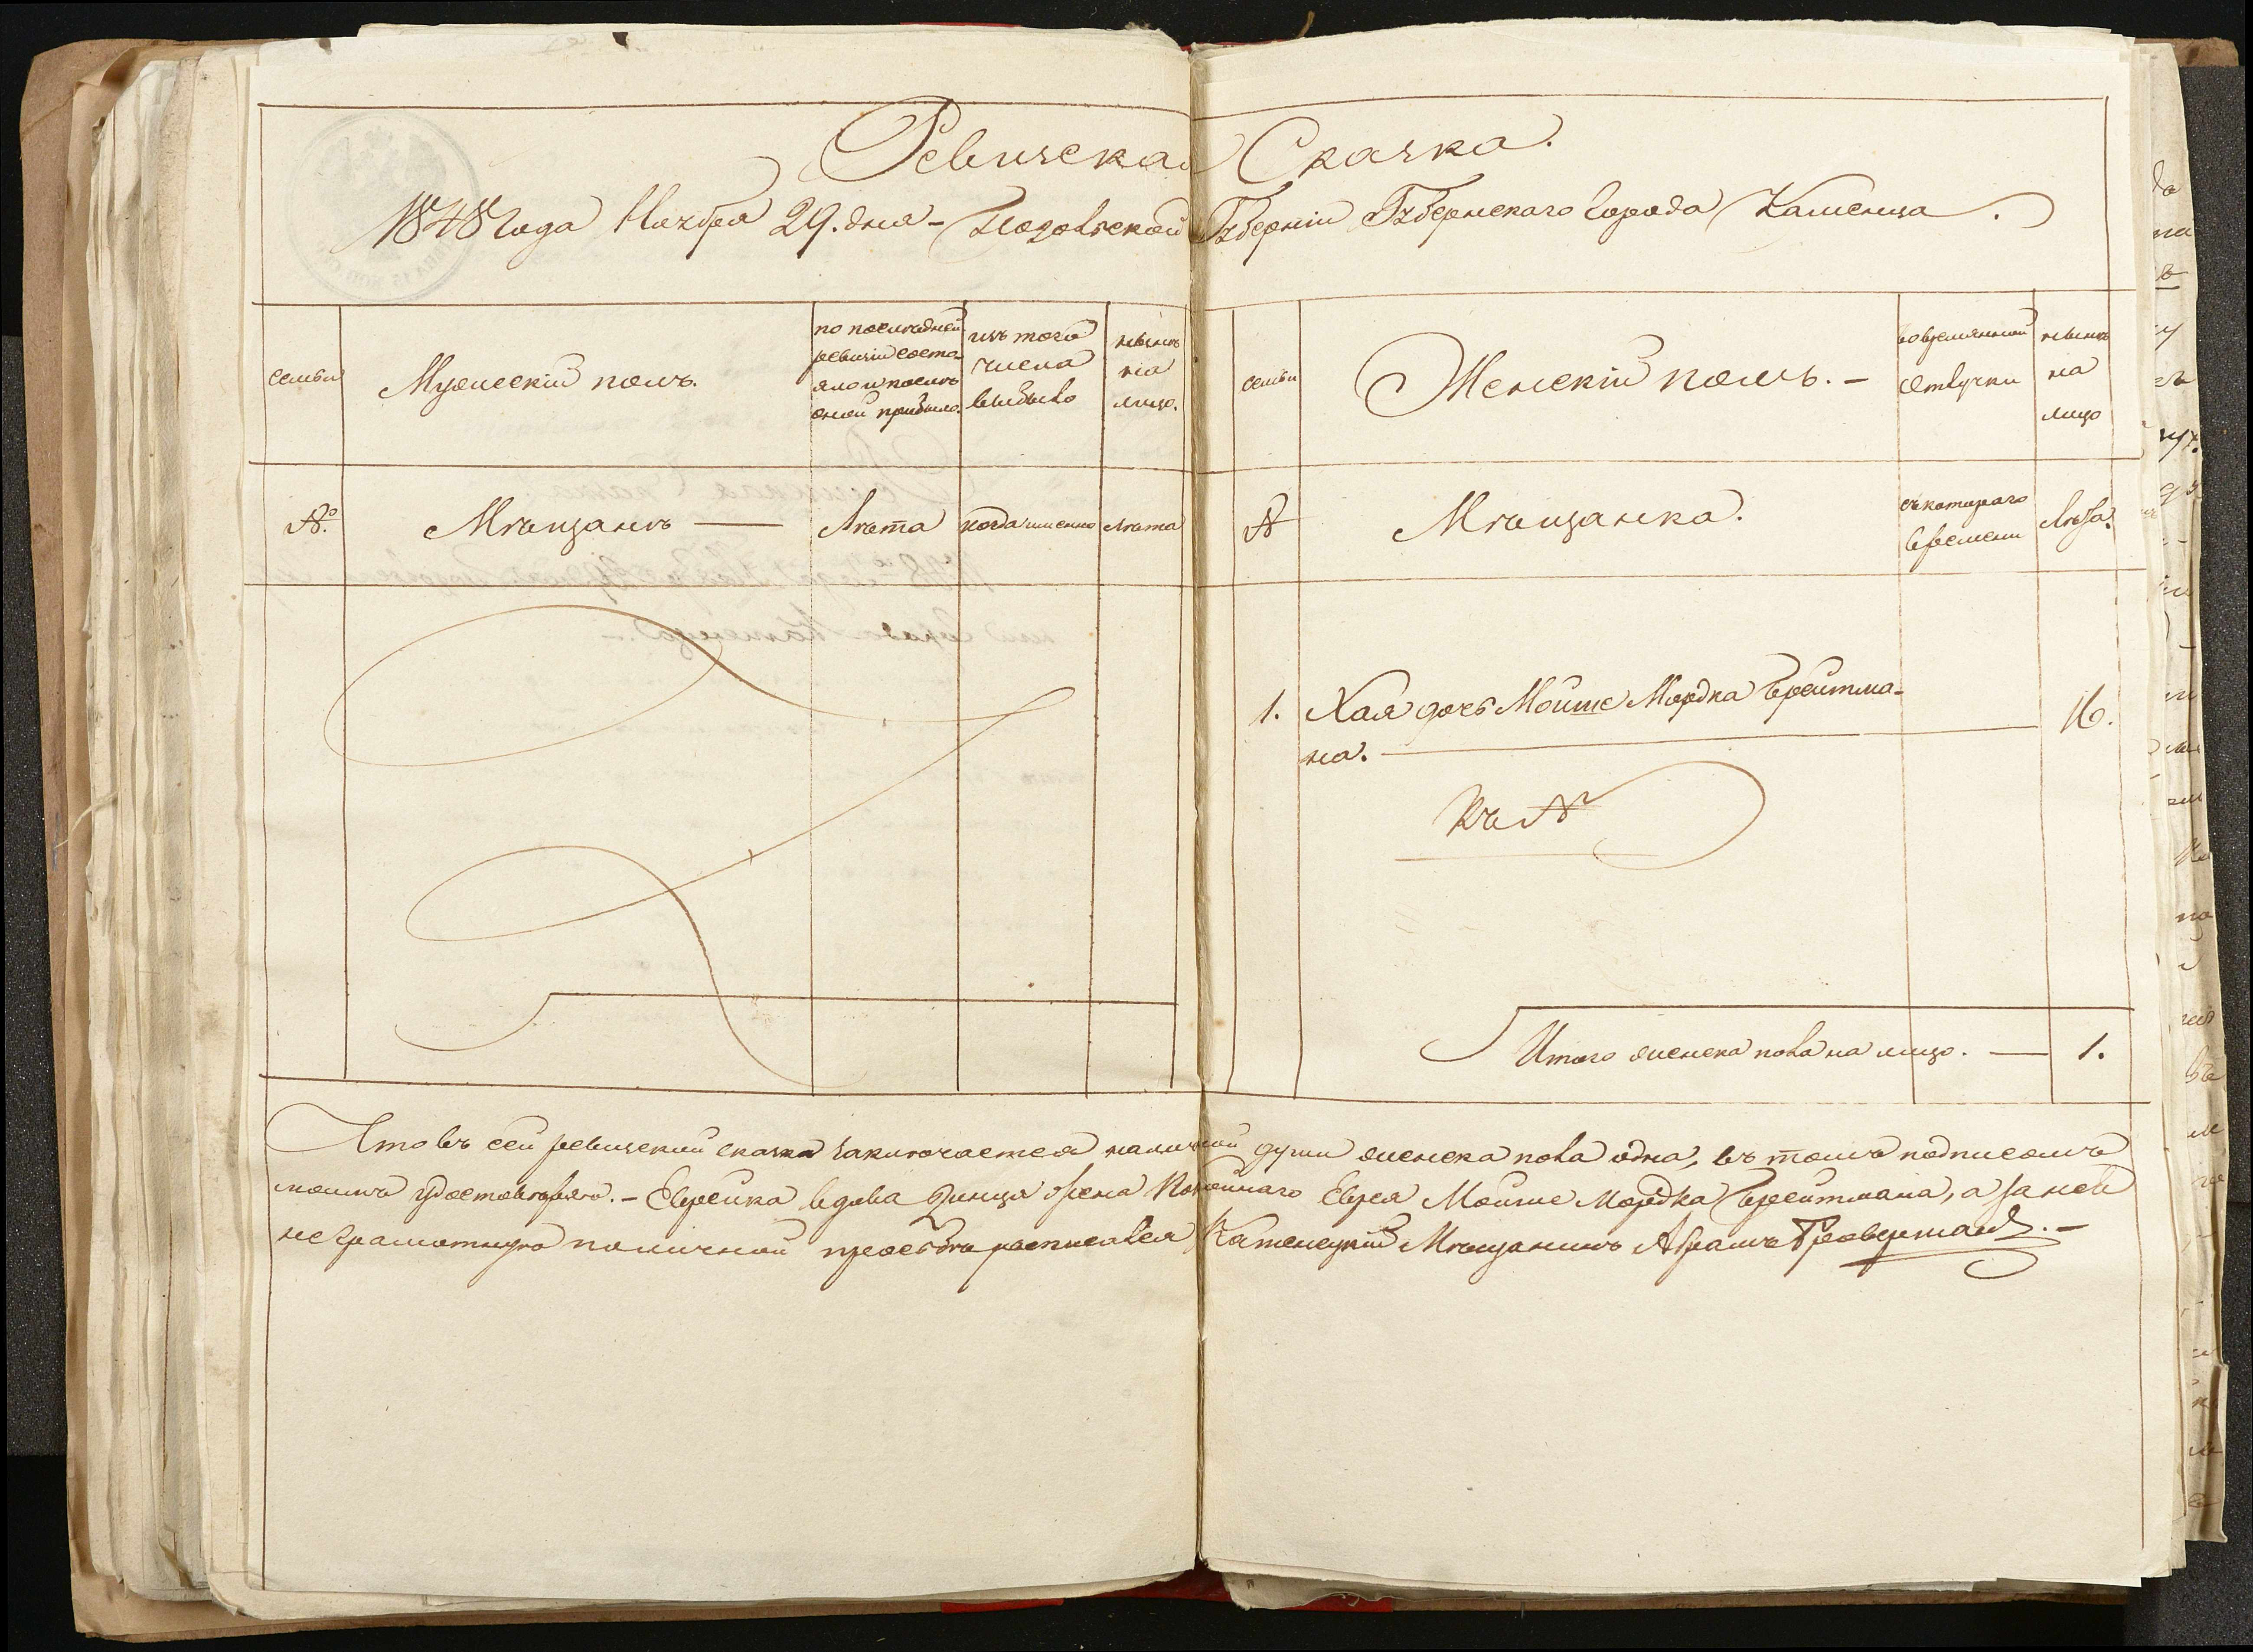 Ревизская Сказка.
1848 года Ноября 29. дня – Подольской Губерніи Губернскаго города Каменца.
семьи
Мужескій полъ.
по послѣдней
ревизіи состо-
яло и послѣ
оной прибыло.
изъ того
числа
выбыло
нынѣ
на
лицо.
семьи
Женскій полъ. –
во временной
отлучки
нынѣ
на
лицо
№.
Мѣщанъ —
Лѣта
когда именно
лѣта
№
Мѣщанка.
съ котораго
времени
Лѣта.
1. Хая дочь Мойше Мордка Брейтма-
на. — 16.
Къ №
Итого женска пола на лицо. — 1.
Что въ сей ревизской сказкѣ заключается наличной души женска пола одна, въ томъ подписомъ
моимъ удостовѣряю. – Еврейка вдова жена Покойнаго Еврея Мойше Мордка Брейтмана, а за ней
неграмотную по личной просьбѣ расписался Каменецкій Мѣщанинъ Абрамъ. –